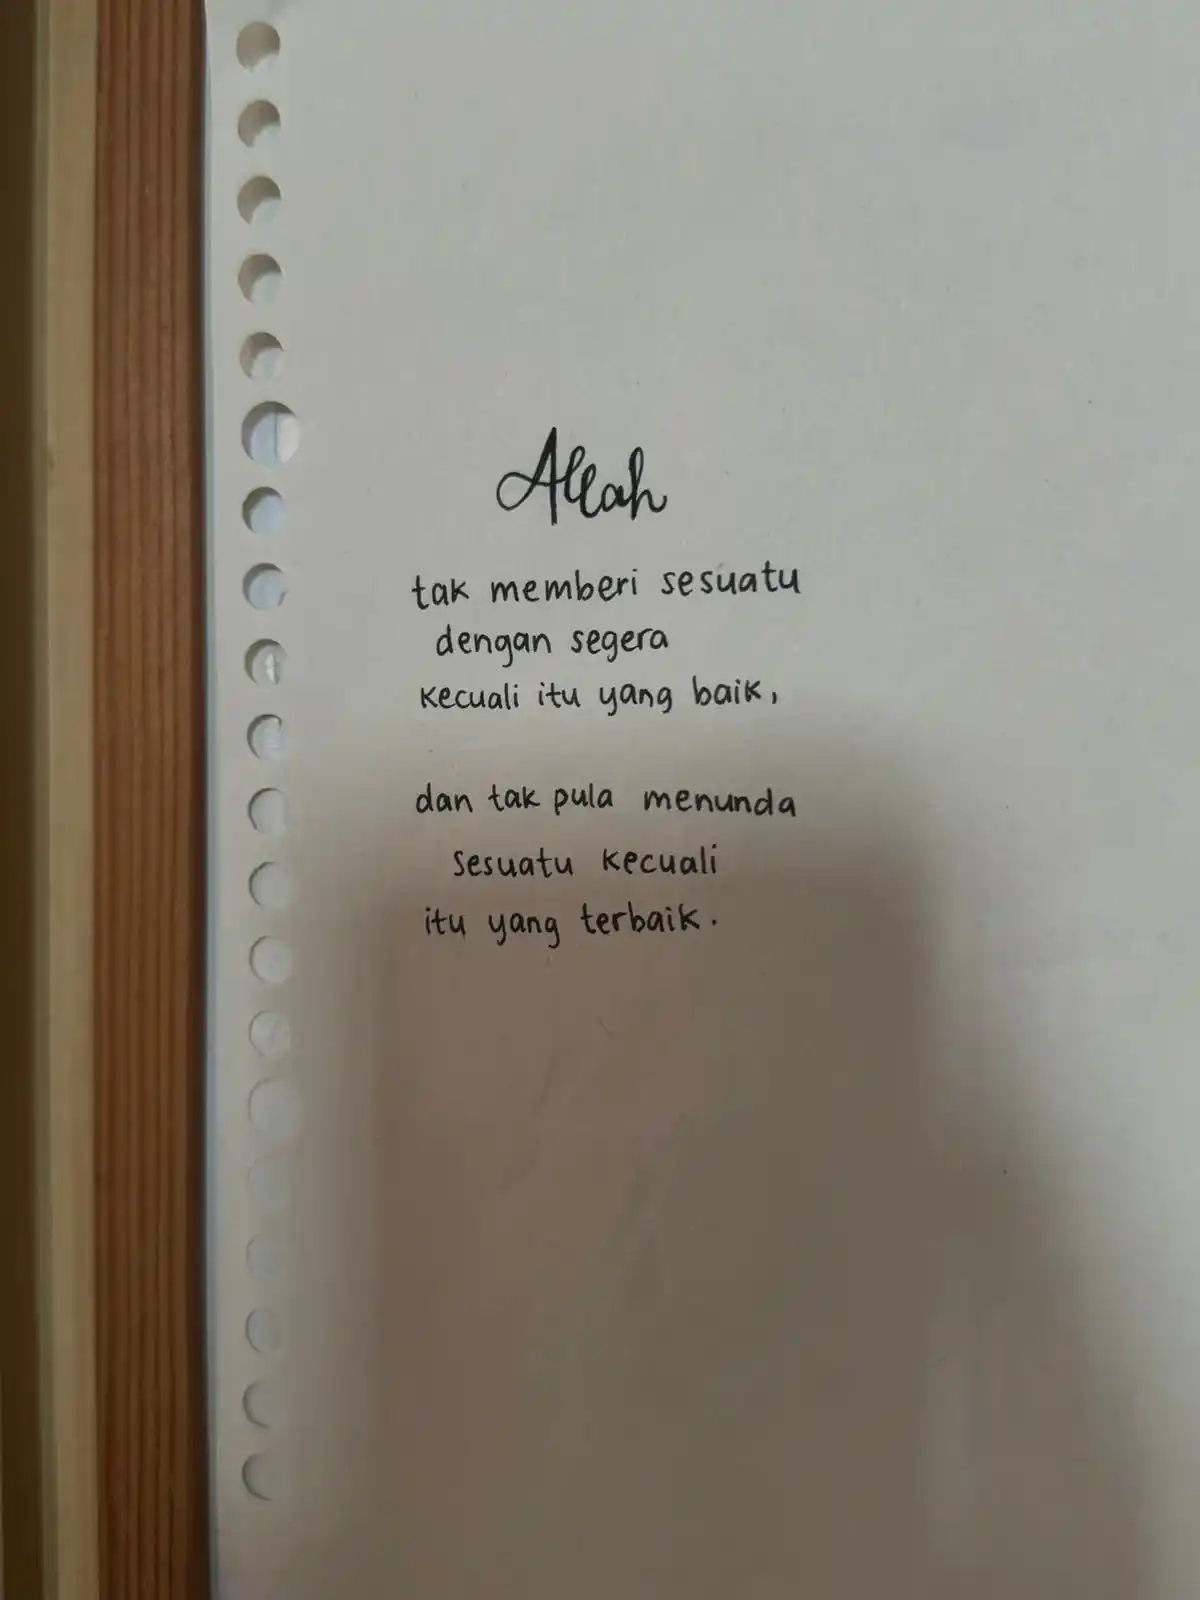 Allah
tak memberi sesuatu
dengan segera
kecuali itu yang baik,
dan tak pula menunda
sesuatu kecuali
itu yang terbaik.